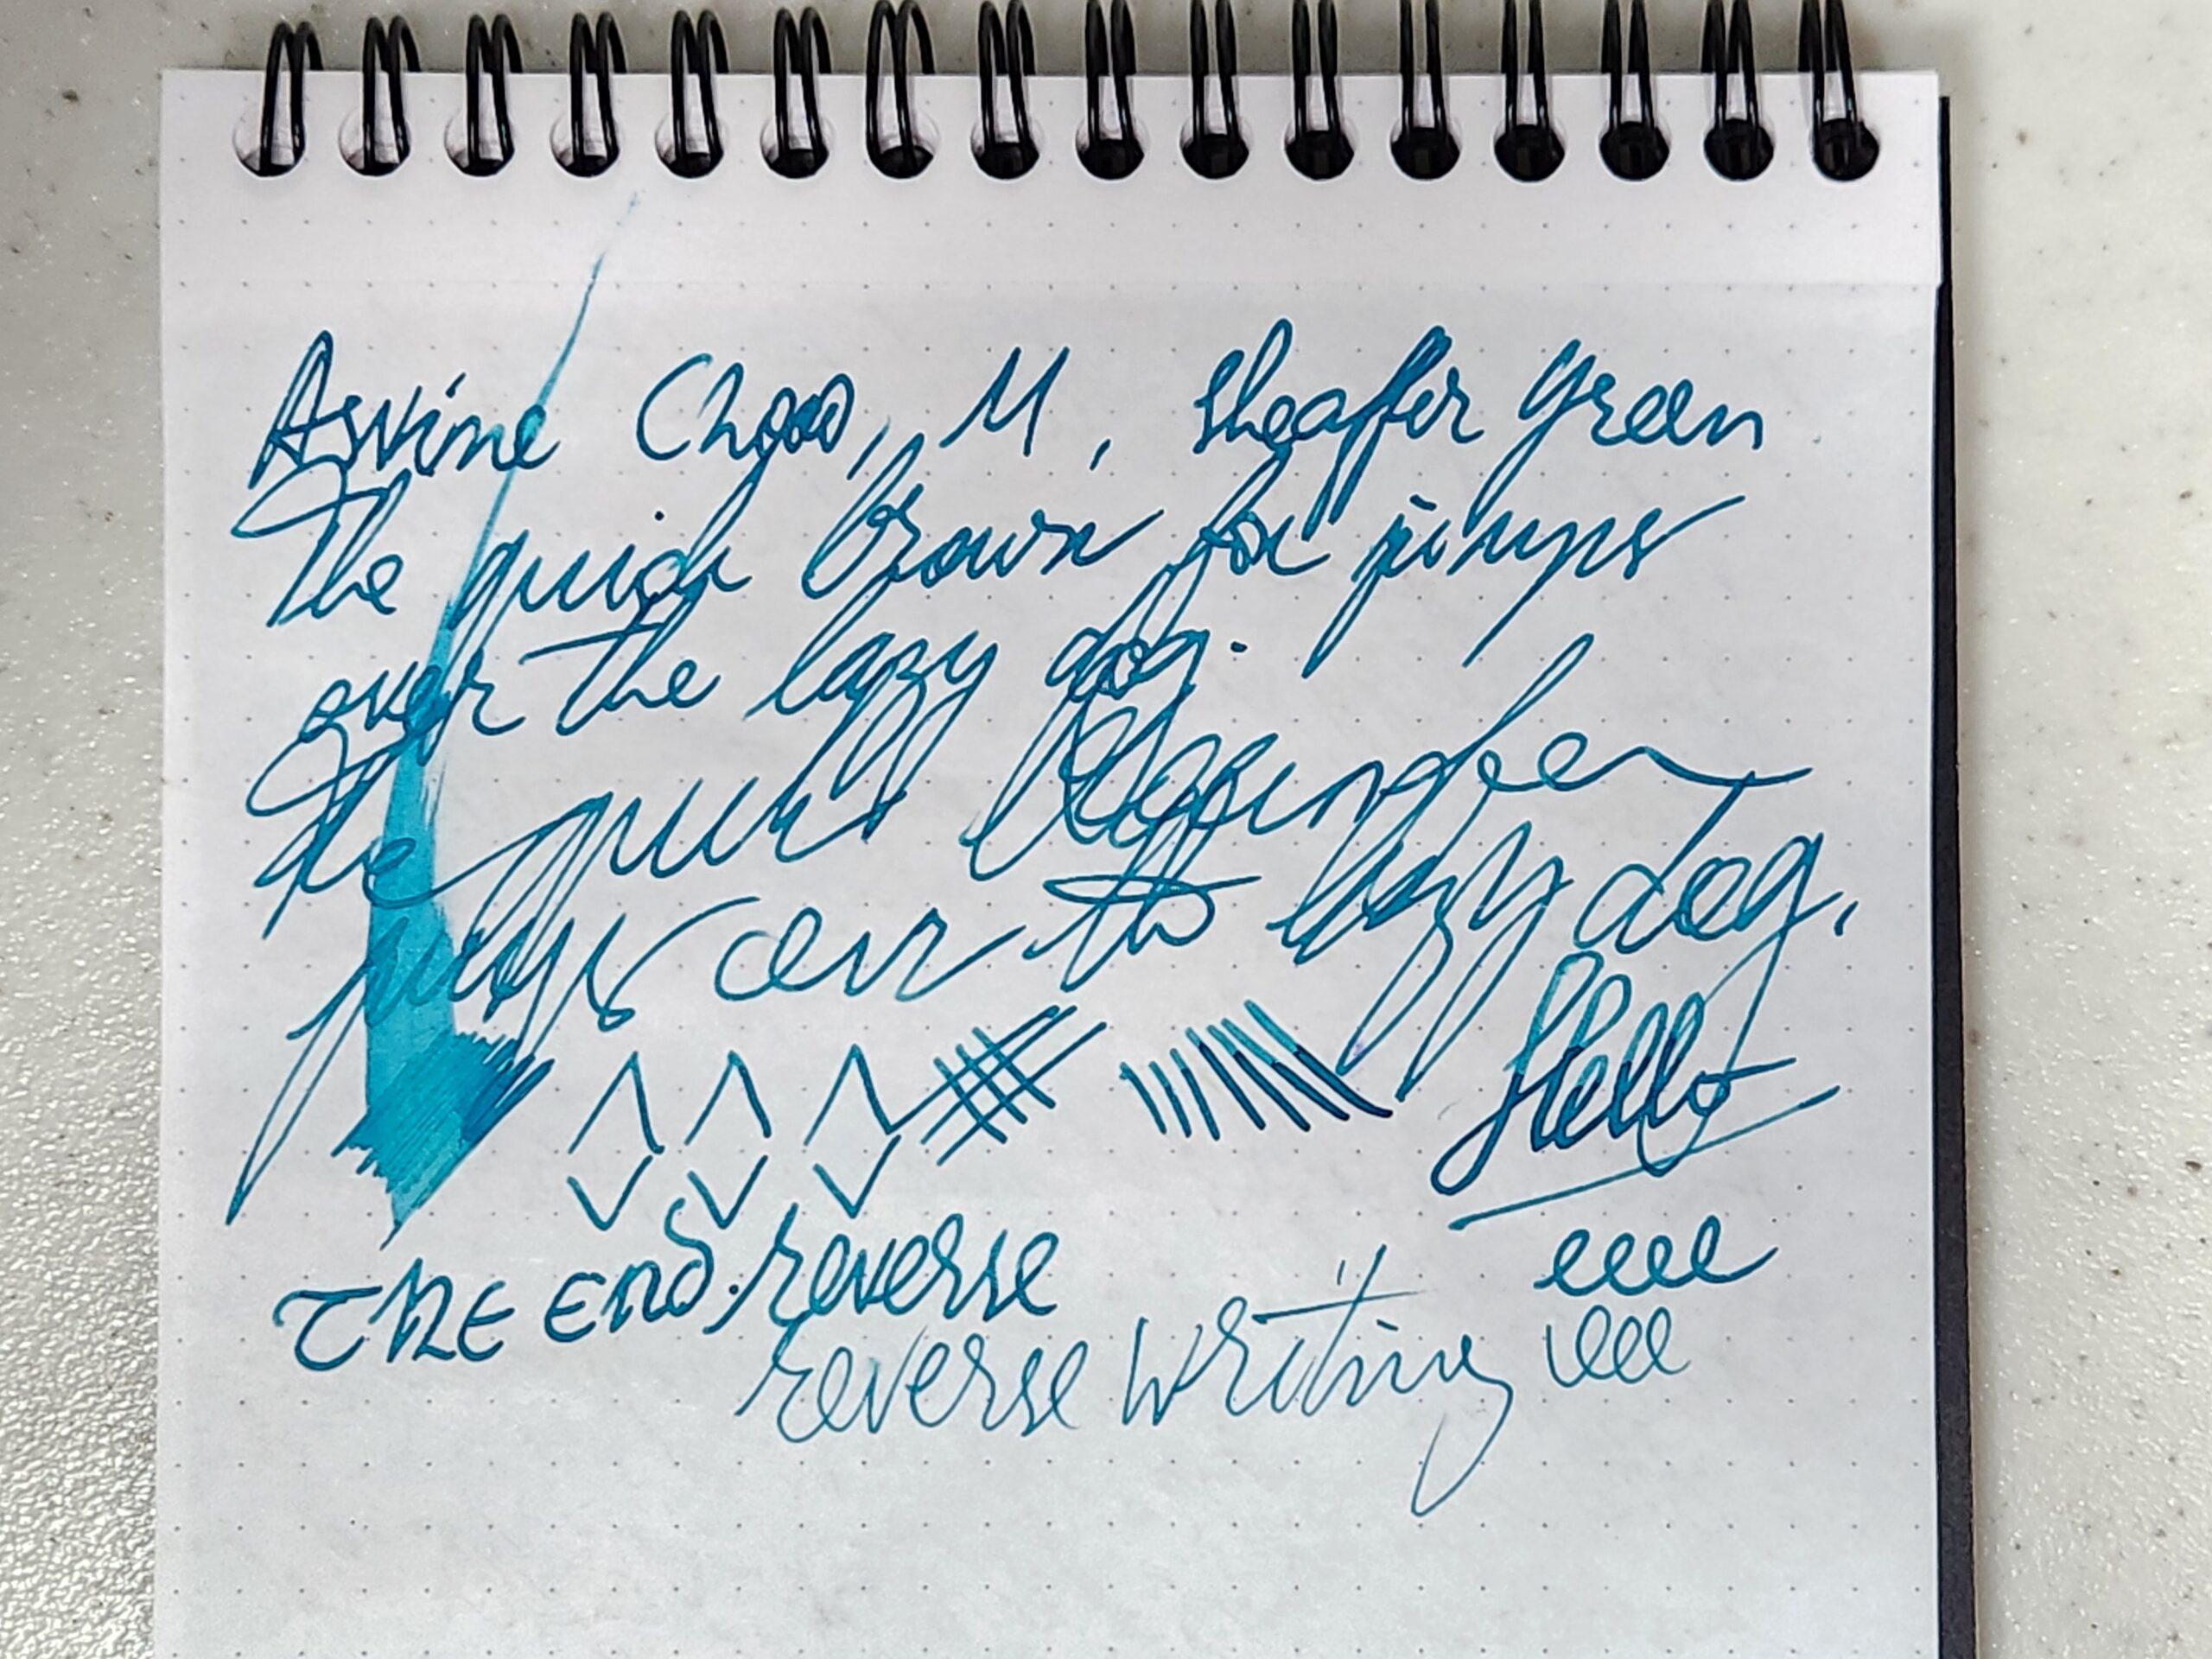 Asvine Chaos, M, Sheaffer green
The quick brown fox jumps
over the lazy dog.
The quick
jumps over the lazy dog.
Hello
THE END. reverse
eeee
reverse writing eee